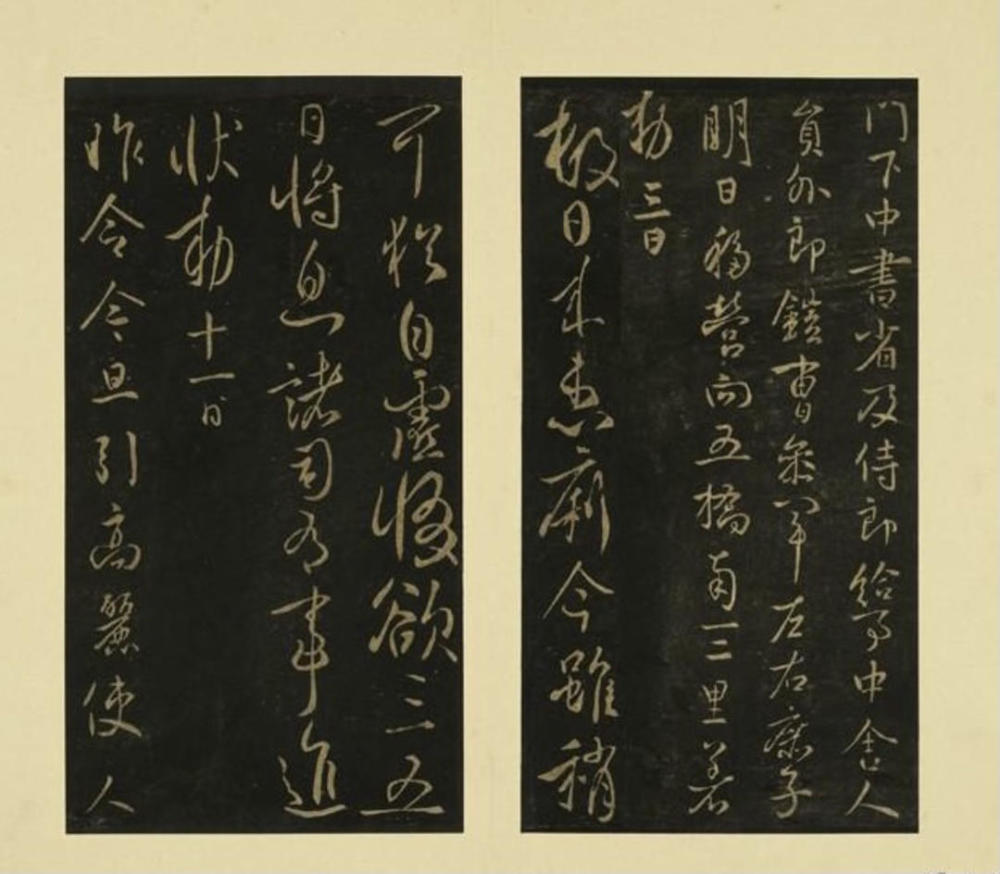 門下中書省及侍郎給事中舍人
員外郎鎧曹參軍左右庶子
明日移營向五橋南一二里著
敕三日
數日來患痢今雖稍
可猶自虛惙欲三五
日將息諸司有事進
狀敕十一日
昨令今旦引高麗使人